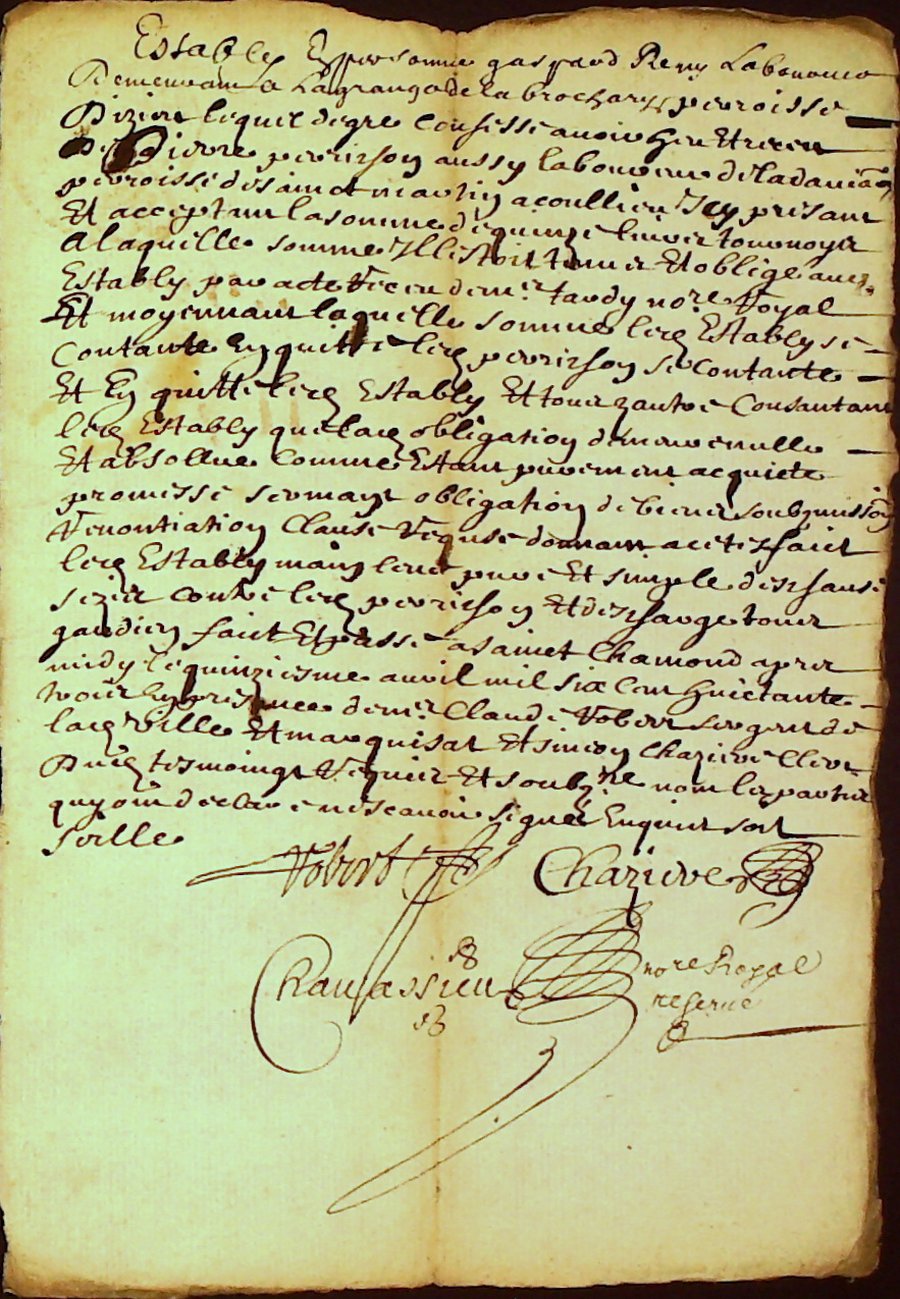 Estably En personne gaspard Remy Laboureur
Demeurant A La grange de la brochary parroisse
D'izieu lequel de gre confesse avoir heu Et receu
De Pierre perrichon aussy laboureur de
parroisse de sainct martin acoullieu Icy presant
Et acceptant la somme de quinze livres tournoys
A laquelle somme Il estoit tenu Et oblige aud.
Estably par acte receu de mr. tardy nore. Royal
Et moyennant laquelle somme led Estably se
Contante En quitte led perrichon se contante
Et En quitte led Estably Et tous zautre Consantant
led Estably que lad obligation demeure nulle
Et absollue comme Estant purement acquicte
promesse sermant obligation de biens soubzmission
Renontiation Clause Requse donnant acetz faict
led Estably main levee pure Et simple des
sezies contre led perrichon Et descharge tous
gardien faict Et passe a sainct Chamond apres
midy le quinziesme avril mil six cent huictante
trois En presance de mr. Claude Robert sergent de
lad ville Et marquisat Et simeon Chazieve Clerc
Dud tesmoings Requis Et soubzne non les parties
quy ont declare ne scavoir signer Enquis soit
Seelle
Robert Chazieve
Chavassieu nore Royal
reserve